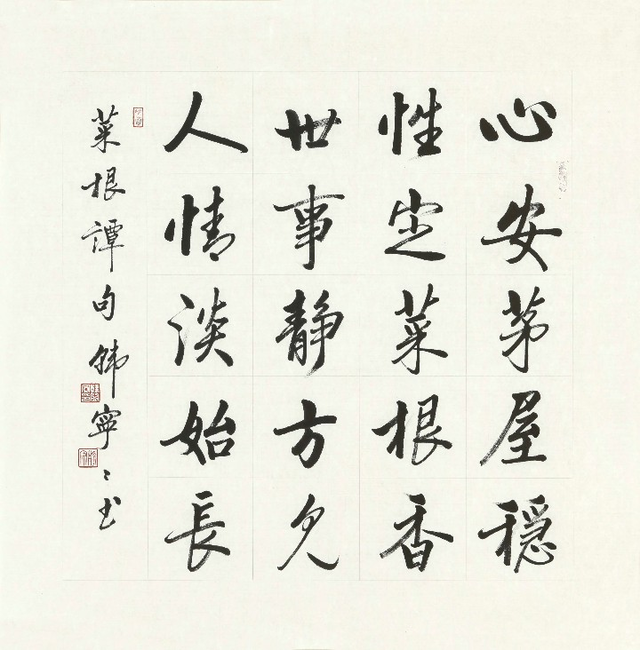 心安茅屋穩
性定菜根香
世事静方見
人情淡始長
菜根譚句 韩寧々书